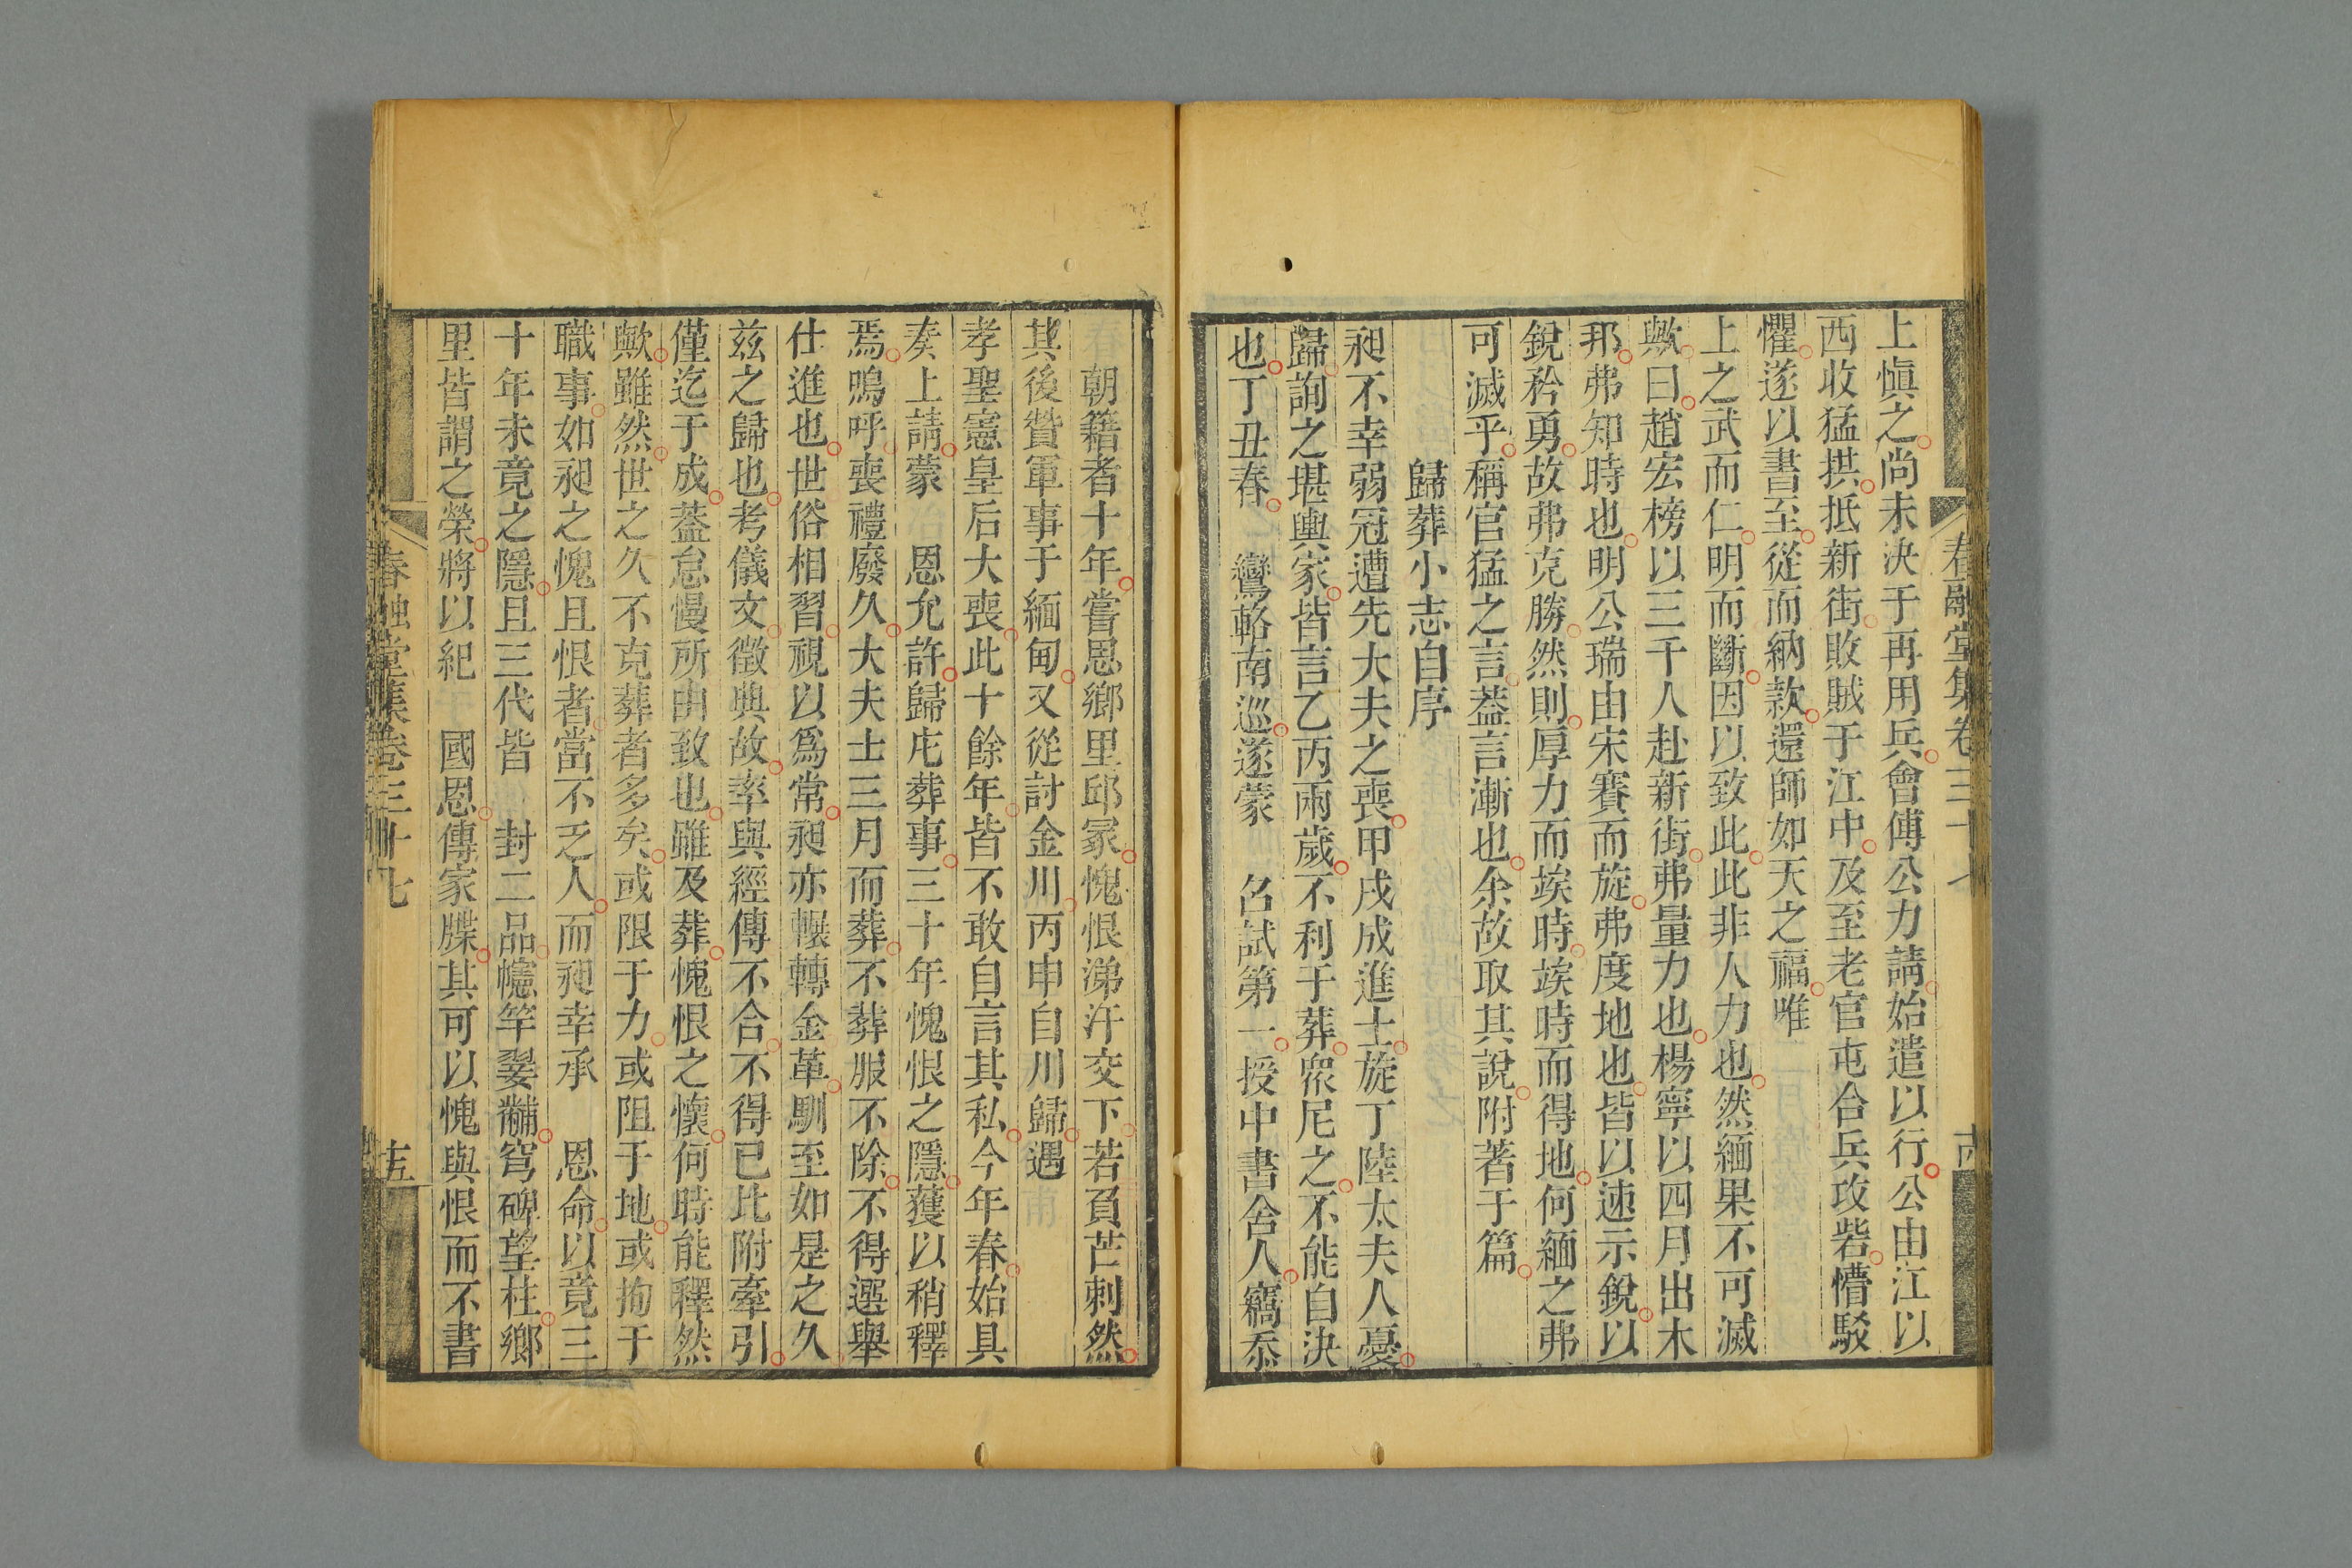 上愼之尚未決于再用兵會傅公力請始遣以行公由江以
西收猛拱抵新街敗賊于江中及至老官屯合兵攻砦懵駁
懼遂以書至從而納款還師如天之福唯
上之武而仁明而斷因以致此此非人力也然緬果不可滅
歟曰趙宏榜以三千人赴新街弗量力也楊寧以四月出木
邦弗知時也明公瑞由宋賽而旋弗度地也皆以速示銳以
銳矜勇故弗克勝然則厚力而埃時竢時而得地何緬之弗
可滅乎稱官猛之言葢言漸也余故取其說附著于篇
歸葬小志自序
昶不幸弱冠遭先大夫之喪甲戌成進士旋丁陸太夫人憂
歸詢之堪輿家皆言乙丙兩歲不利于葬眾尼之不能自決
也丁丑春 鸞輅南巡遂蒙 召試第一授中書舍人竊忝
春融堂集卷三十七
朝籍者十年嘗思鄉里邱冢愧恨涕汗交下若負芒刺然
其後贊軍事于緬甸又從討金川丙申自川歸遇
孝聖憲皇后大喪此十餘年皆不敢自言其私今年春始具
奏上請蒙 恩允許歸庀葬事三十年愧恨之隱獲以稍釋
焉嗚呼喪禮廢久大夫士三月而葬不葬服不除不得選舉
仕進也世俗相習視以爲常昶亦輾轉金革馴至如是之久
兹之歸也考儀文徵典故率與經傳不合不得已比附牽引
僅迄于成葢怠慢所由致也雖及葬愧恨之懷何時能釋然
歟雖然世之久不克葬者多矣或限于力或阻于地或拘于
職事如昶之愧且恨者當不乏人而昶幸承 恩命以竟三
十年未竟之隱且三代皆 封二品幰竿翣黼穹碑望柱鄉
里皆謂之榮將以紀 國恩傳家牒其可以愧與恨而不書
春融堂集卷三十七
十五